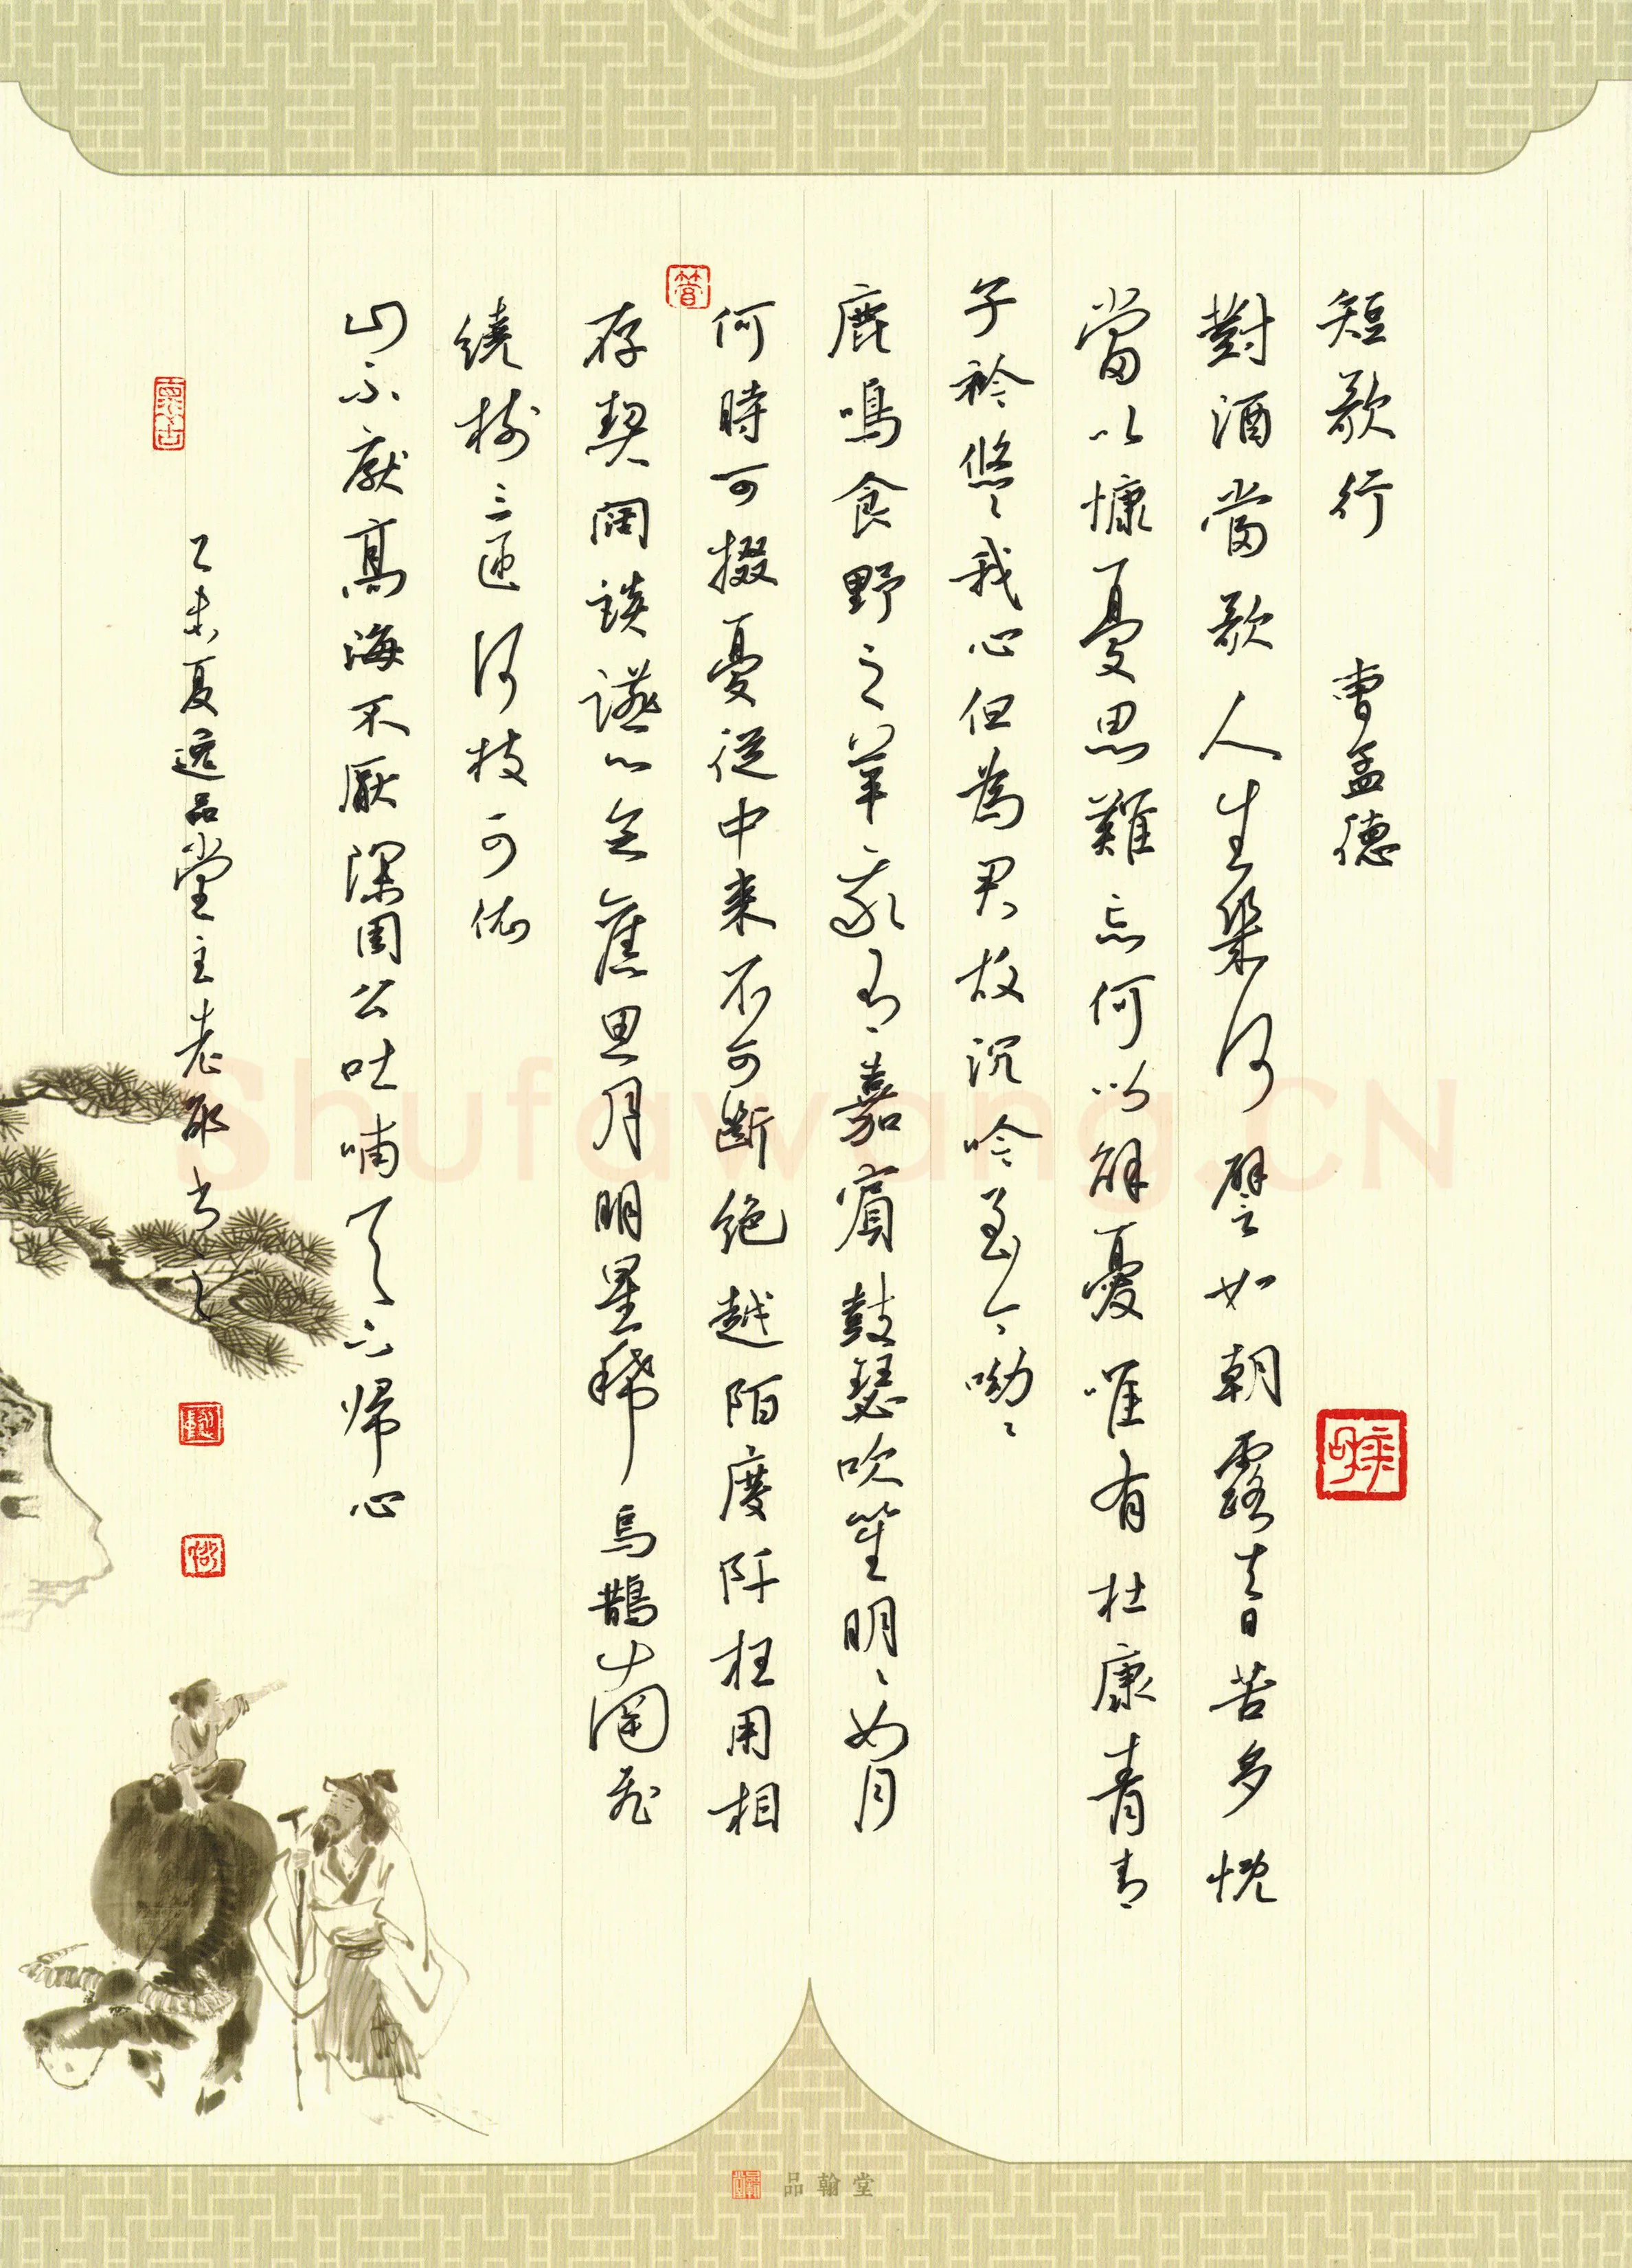 短歌行 曹孟德
對酒當歌人生幾何譬如朝露去日苦多慨
當以慷憂思難忘何以解憂唯有杜康青青
子衿悠々我心但為君故沉吟至今呦々
鹿鳴食野之苹我有嘉賓鼓瑟吹笙明々如月
何時可掇憂從中来不可斷絕越陌度阡枉用相
存契闊談讌心念舊恩月明星稀烏鵲南飛
繞樹三匝何枝可依
山不厭高海不厭深周公吐哺天下歸心
乙未夏逸品堂主老邪书之
品翰堂
Shufawang.CN